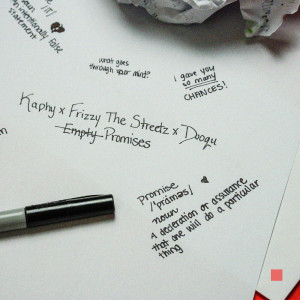 /ır/
noun
An intentionally false
statement
what goes
through your mind?
i gave you
so many
CHANCES!
Kaphy x Frizzy The Streetz x Dooqu
Empty Promises
Promise
/'prɑməs/
noun
A decleration or assurance
that one will do a particular
thing